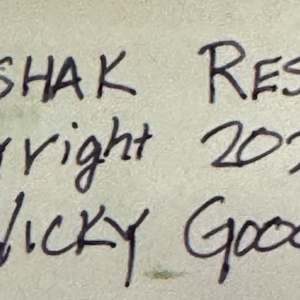 SHAK RES
yright 202
VICKY GOO